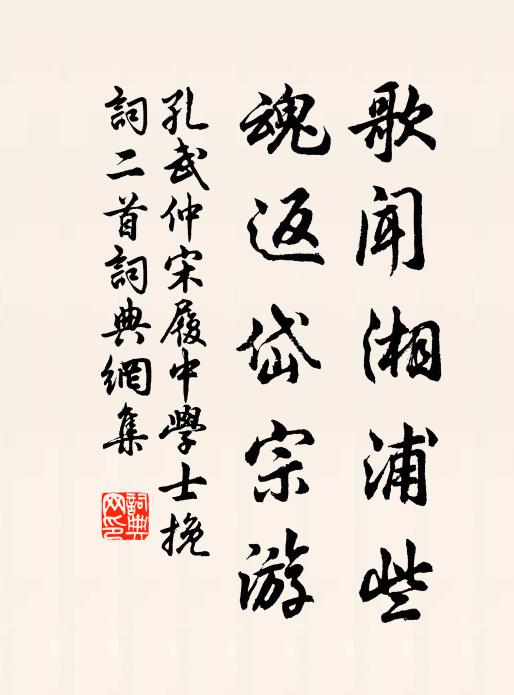 歌闻湘浦些
魂返岱宗游
孔武仲宋履中學士挽
詞二首詞典網集
詞典
网印